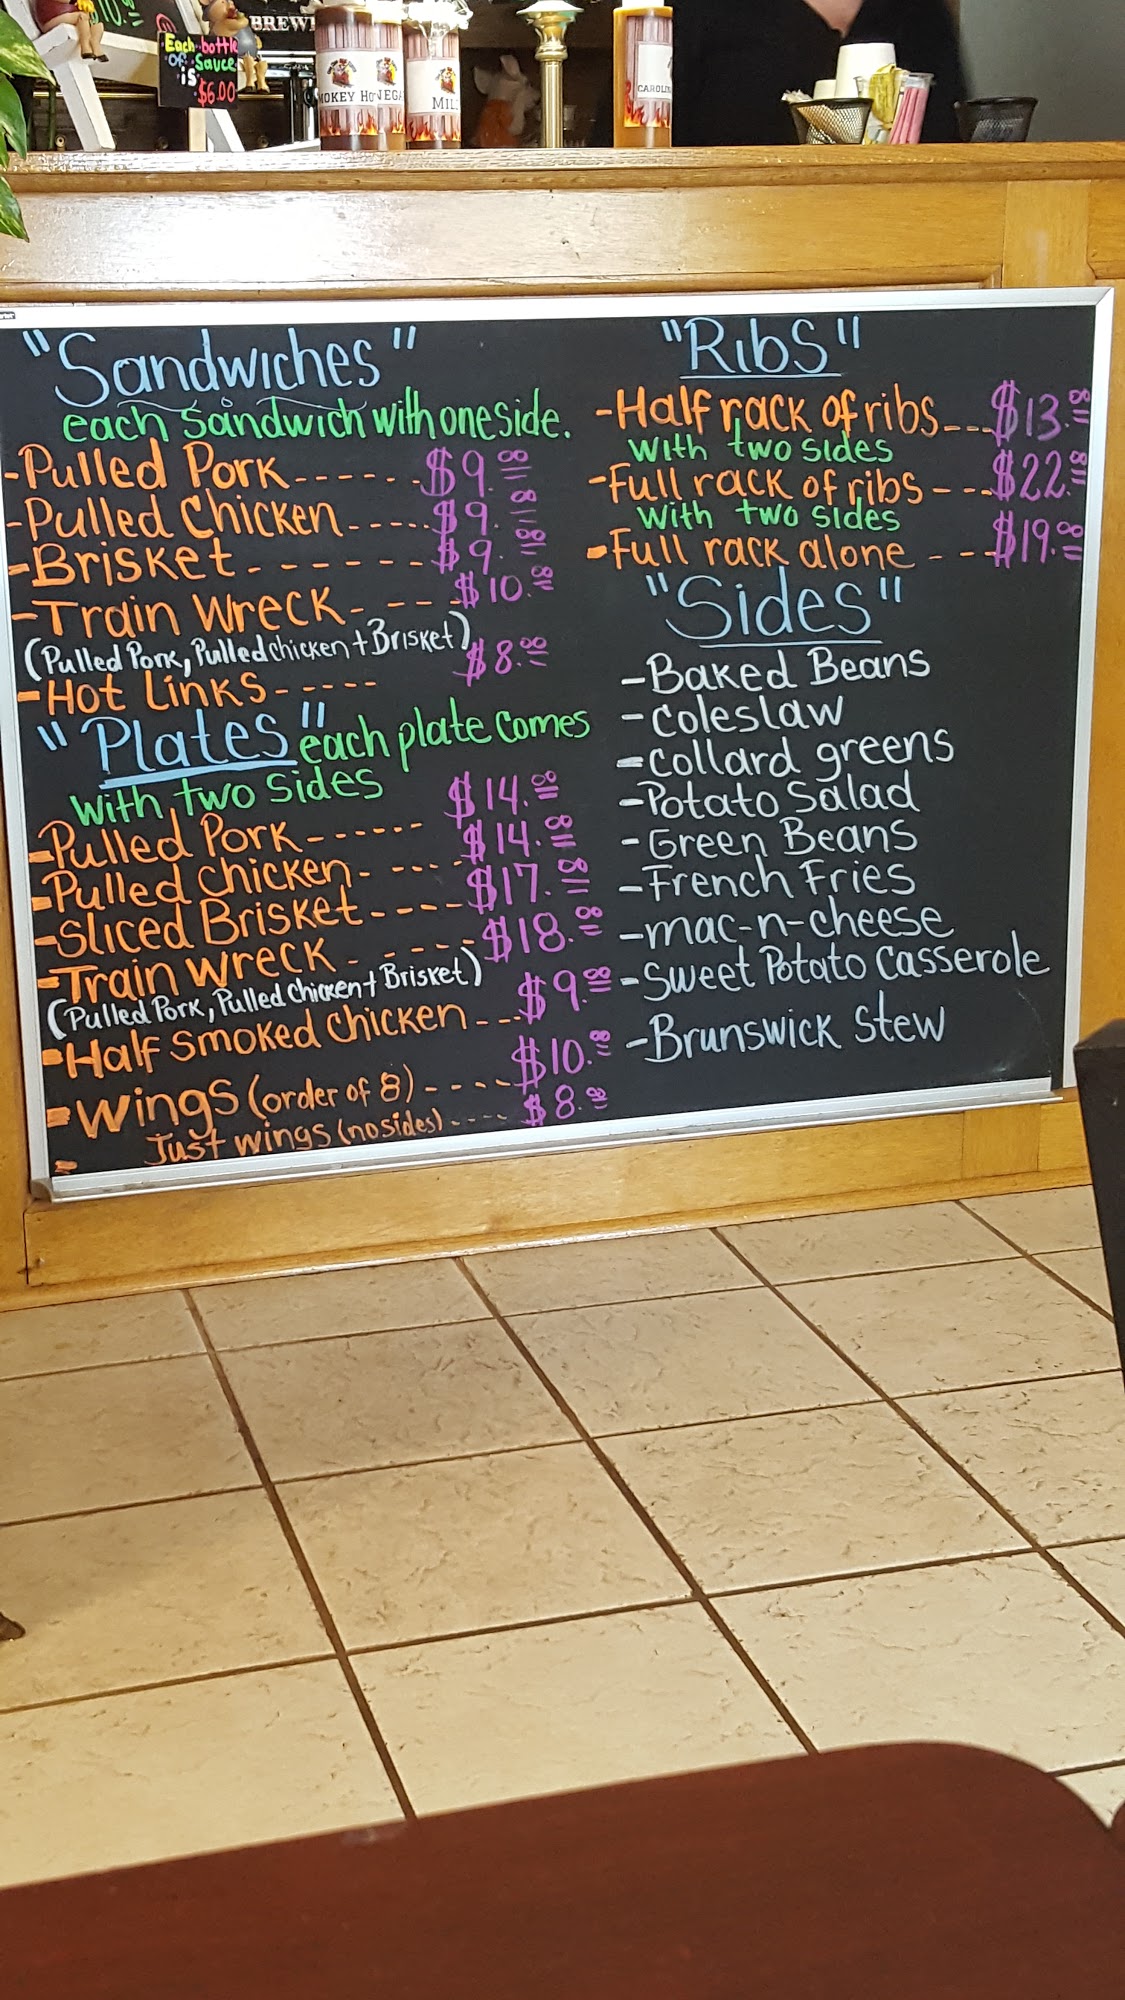 BREW
Each bottle
of Sauce
is
$6.00
MOKEY HO
VEGA
MIL
CAROLIN
"Sandwiches"
each Sandwich with one side.
-Pulled Pork------$9.00
-Pulled Chicken-----$9.00
-Brisket-------$9.00
-Train Wreck----$10.00
(Pulled Pork, Pulled chicken + Brisket)
-Hot Links----- $8.00
"Plates" each plate comes
with two sides
-Pulled Pork------ $14.00
-Pulled chicken----- $14.00
-Sliced Brisket---- $17.00
-Train wreck-----$18.00
(Pulled Pork, Pulled Chicken + Brisket)
-Half smoked chicken--- $9.00
-Wings (order of 8)---- $10.00
- Just wings (no sides)---- $8.00
"Ribs"
-Half rack of ribs---$13.00
with two sides
-Full rack of ribs---$22.00
with two sides
-Full rack alone ---$19.00
"Sides"
-Baked Beans
-Coleslaw
-Collard greens
-Potato Salad
-Green Beans
-French Fries
-mac-n-cheese
-Sweet Potato Casserole
-Brunswick Stew